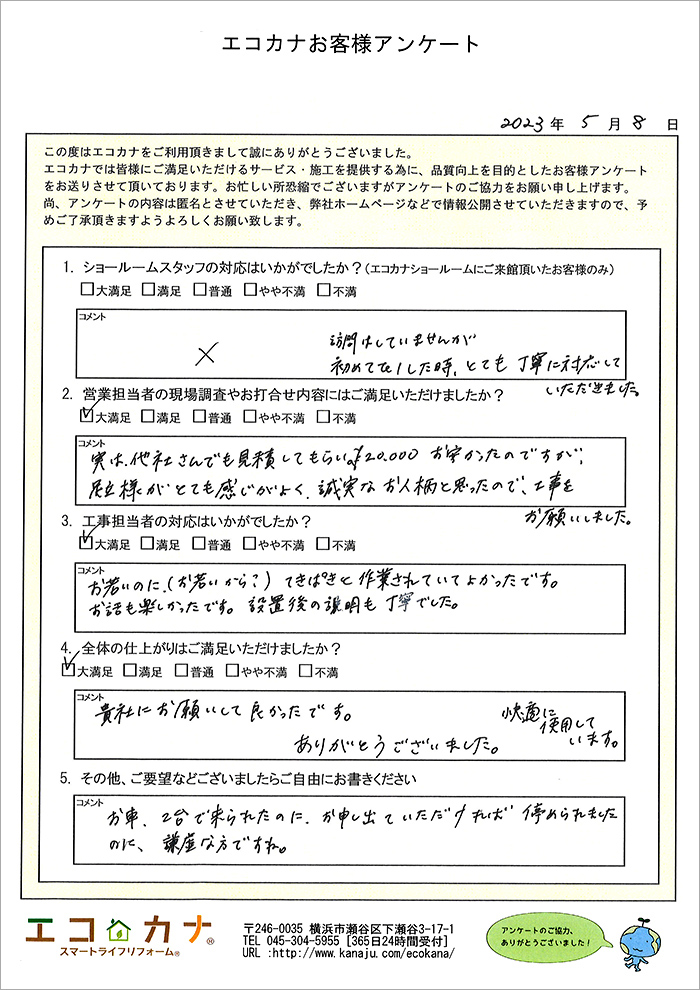 エコカナお客様アンケート
2023年 5月 8日
この度はエコカナをご利用頂きまして誠にありがとうございました。
エコカナでは皆様にご満足いただけるサービス・施工を提供する為に、品質向上を目的としたお客様アンケート
をお送りさせて頂いております。お忙しい所恐縮でございますがアンケートのご協力をお願い申し上げます。
尚、アンケートの内容は匿名とさせていただき、弊社ホームページなどで情報公開させていただきますので、予
めご了承頂きますようよろしくお願い致します。
1. ショールームスタッフの対応はいかがでしたか？(エコカナショールームにご来館頂いたお客様のみ)
□大満足 □満足 □普通 □やや不満 □不満
コメント
× 訪問はしていませんが
初めてTELした時、とても丁寧に対応して
いただきました。
2. 営業担当者の現場調査やお打合せ内容にはご満足いただけましたか？
☑大満足 □満足 □普通 □やや不満 □不満
コメント
実は、他社さんでも見積してもらい、¥20.000 お安かったのですが、
足立様がとても感じがよく、誠実なお人柄と思ったので、工事を
お願いしました。
3. 工事担当者の対応はいかがでしたか？
☑大満足 □満足 □普通 □やや不満 □不満
コメント
お若いのに、(お若いから？) てきぱきと作業されていてよかったです。
お話も楽しかったです。設置後の説明も丁寧でした。
4. 全体の仕上がりはご満足いただけましたか？
☑大満足 □満足 □普通 □やや不満 □不満
コメント
貴社にお願いして良かったです。
ありがとうございました。
快適に
使用して
います。
5. その他、ご要望などございましたらご自由にお書きください
コメント
お車、2台で来られたのに、お申し出ていただければ停められました
のに、謙虚な方ですね。
エコカナ®
スマートライフリフォーム®
〒246-0035 横浜市瀬谷区下瀬谷3-17-1
TEL 045-304-5955 [365日24時間受付]
URL :http://www.kanaju.com/ecokana/
アンケートのご協力、
ありがとうございました！